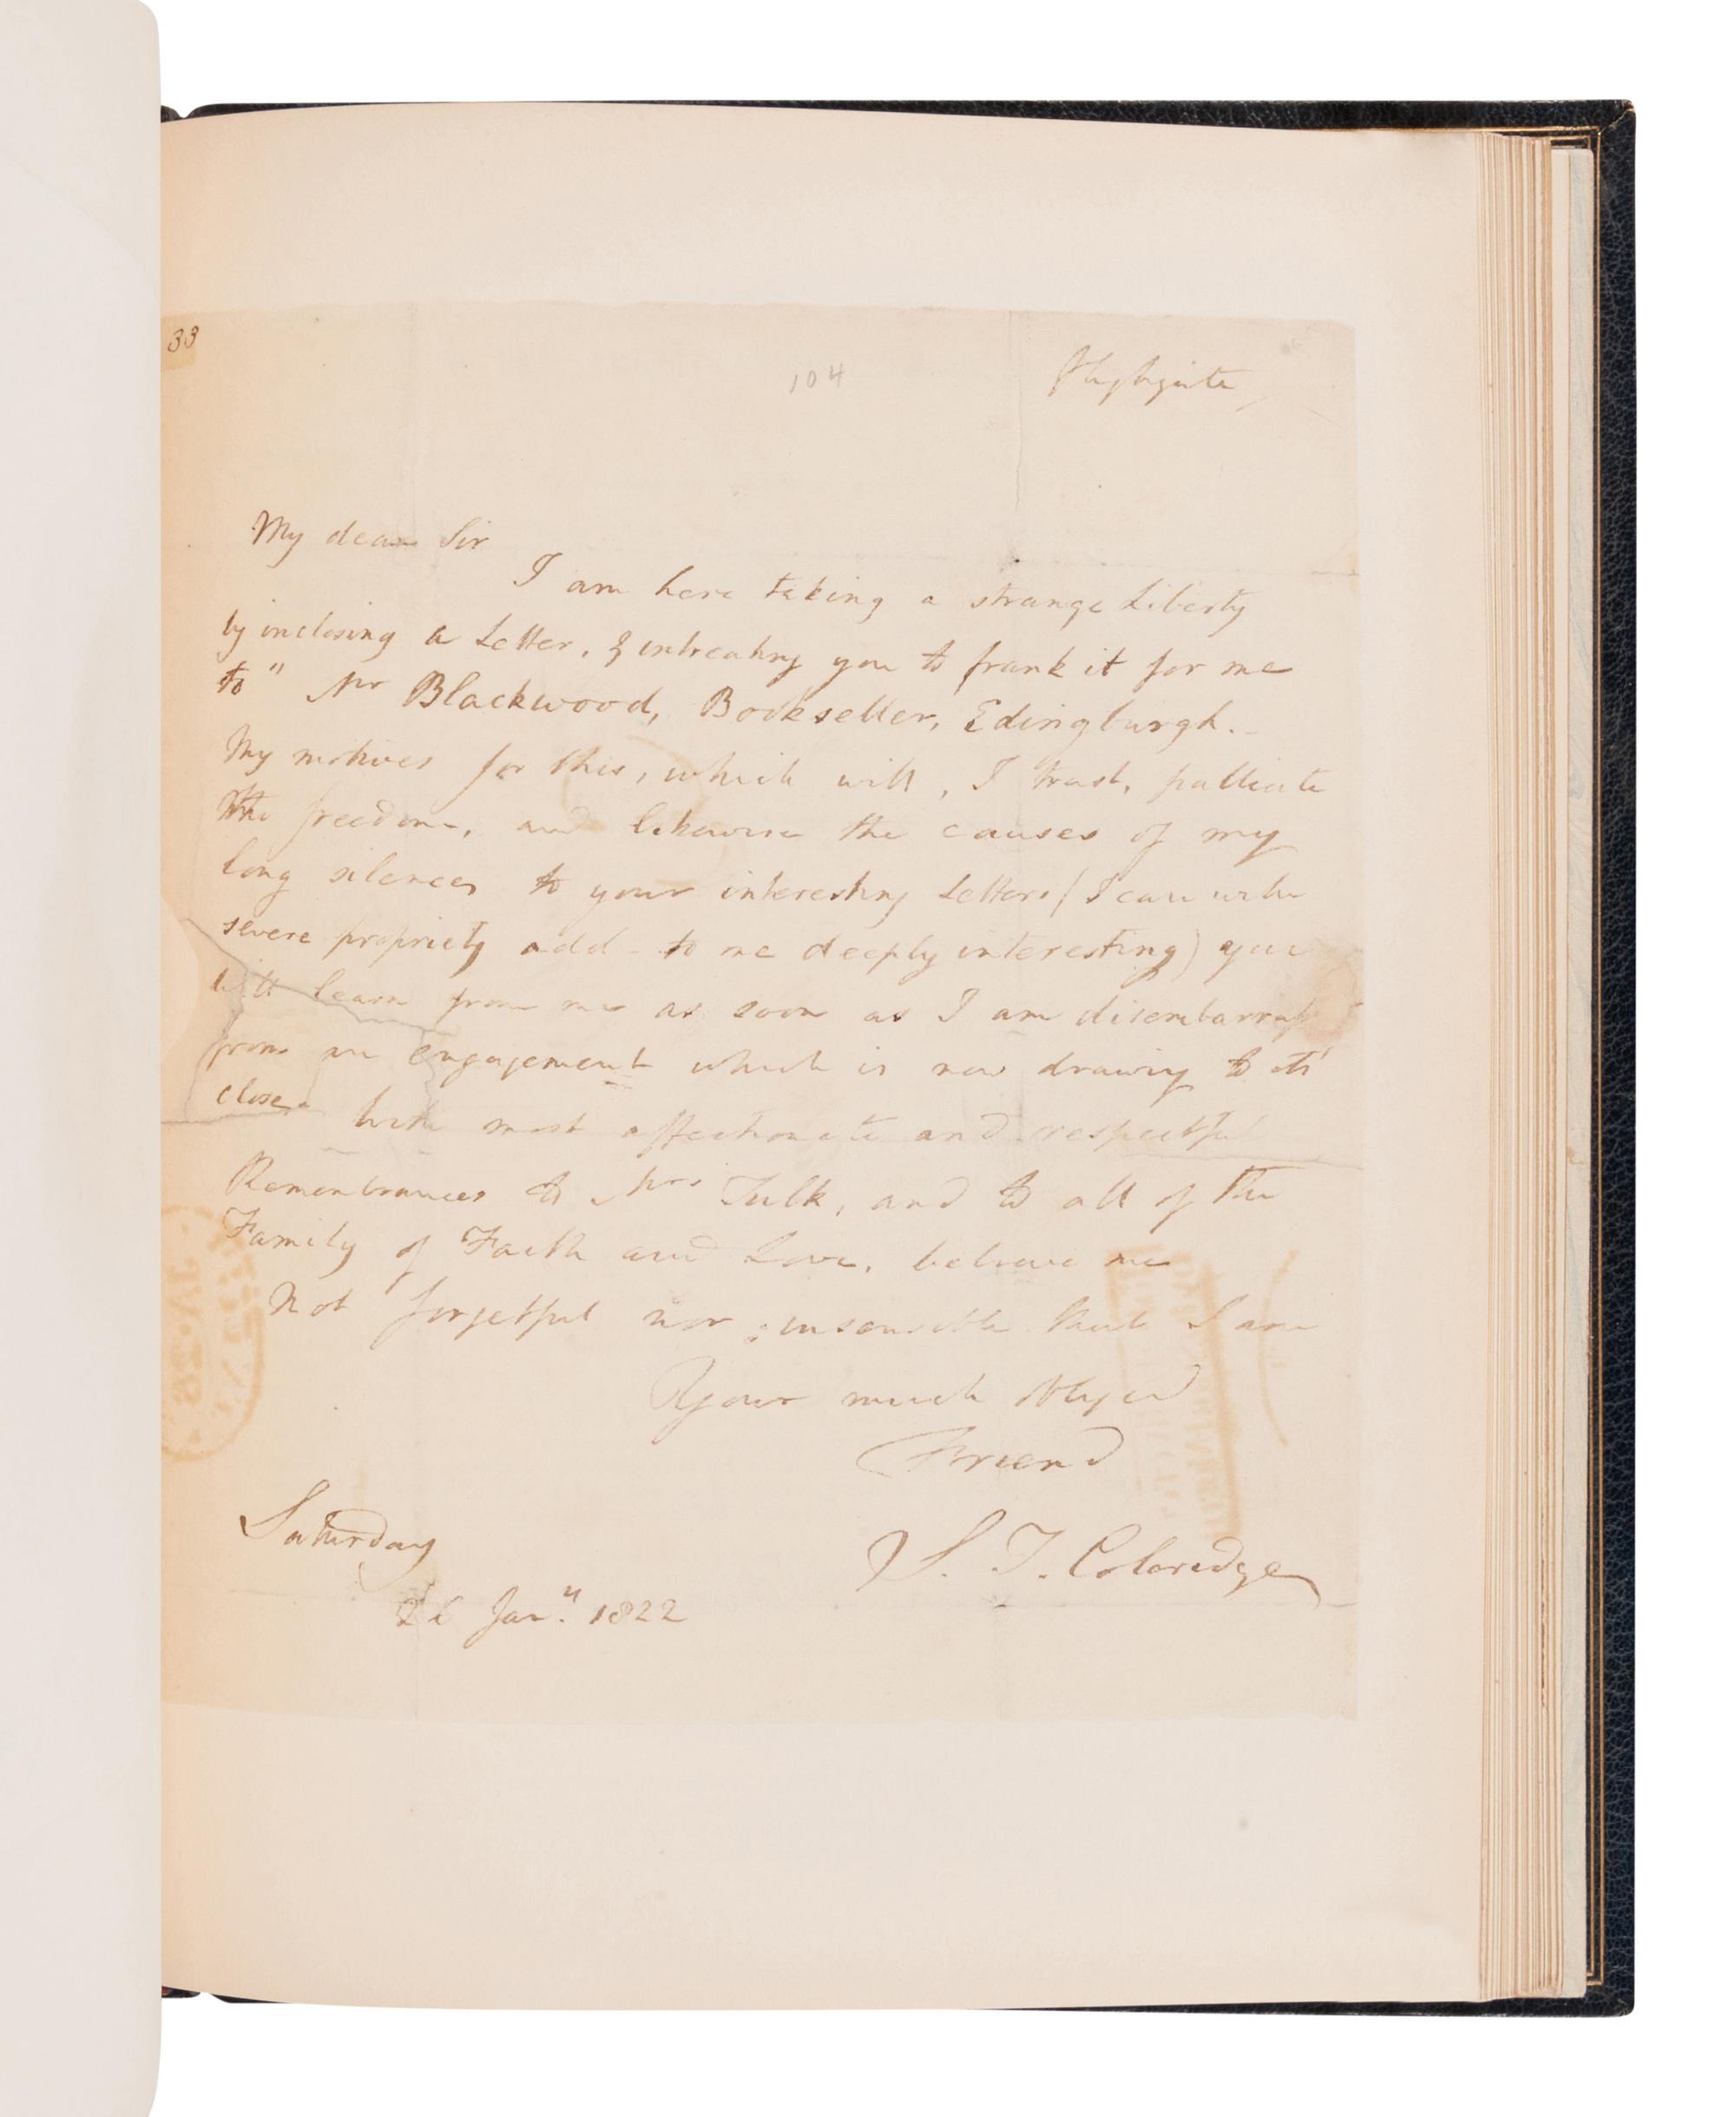 33
104
Highgate
My dear Sir
I am here taking a strange Liberty
by inclosing a Letter, & intreating you to frank it for me
to " Mr Blackwood, Bookseller, Edingburgh. -
My motives for this, which will, I trust, palliate
the freedom, and likewise the causes of my
long silences to your interesting Letters (I can with
severe propriety add - to me deeply interesting) you
will learn from me as soon as I am disembarrass'd
from an engagement which is now drawing to its
close. With most affectionate and respectful
Remembrances to Mrs Tulk, and to all of the
Family of Faith and Love, believe me
Not forgetful nor insensible that I am
Your much obliged
Friend
S. T. Coleridge
Saturday
26 Jany 1822